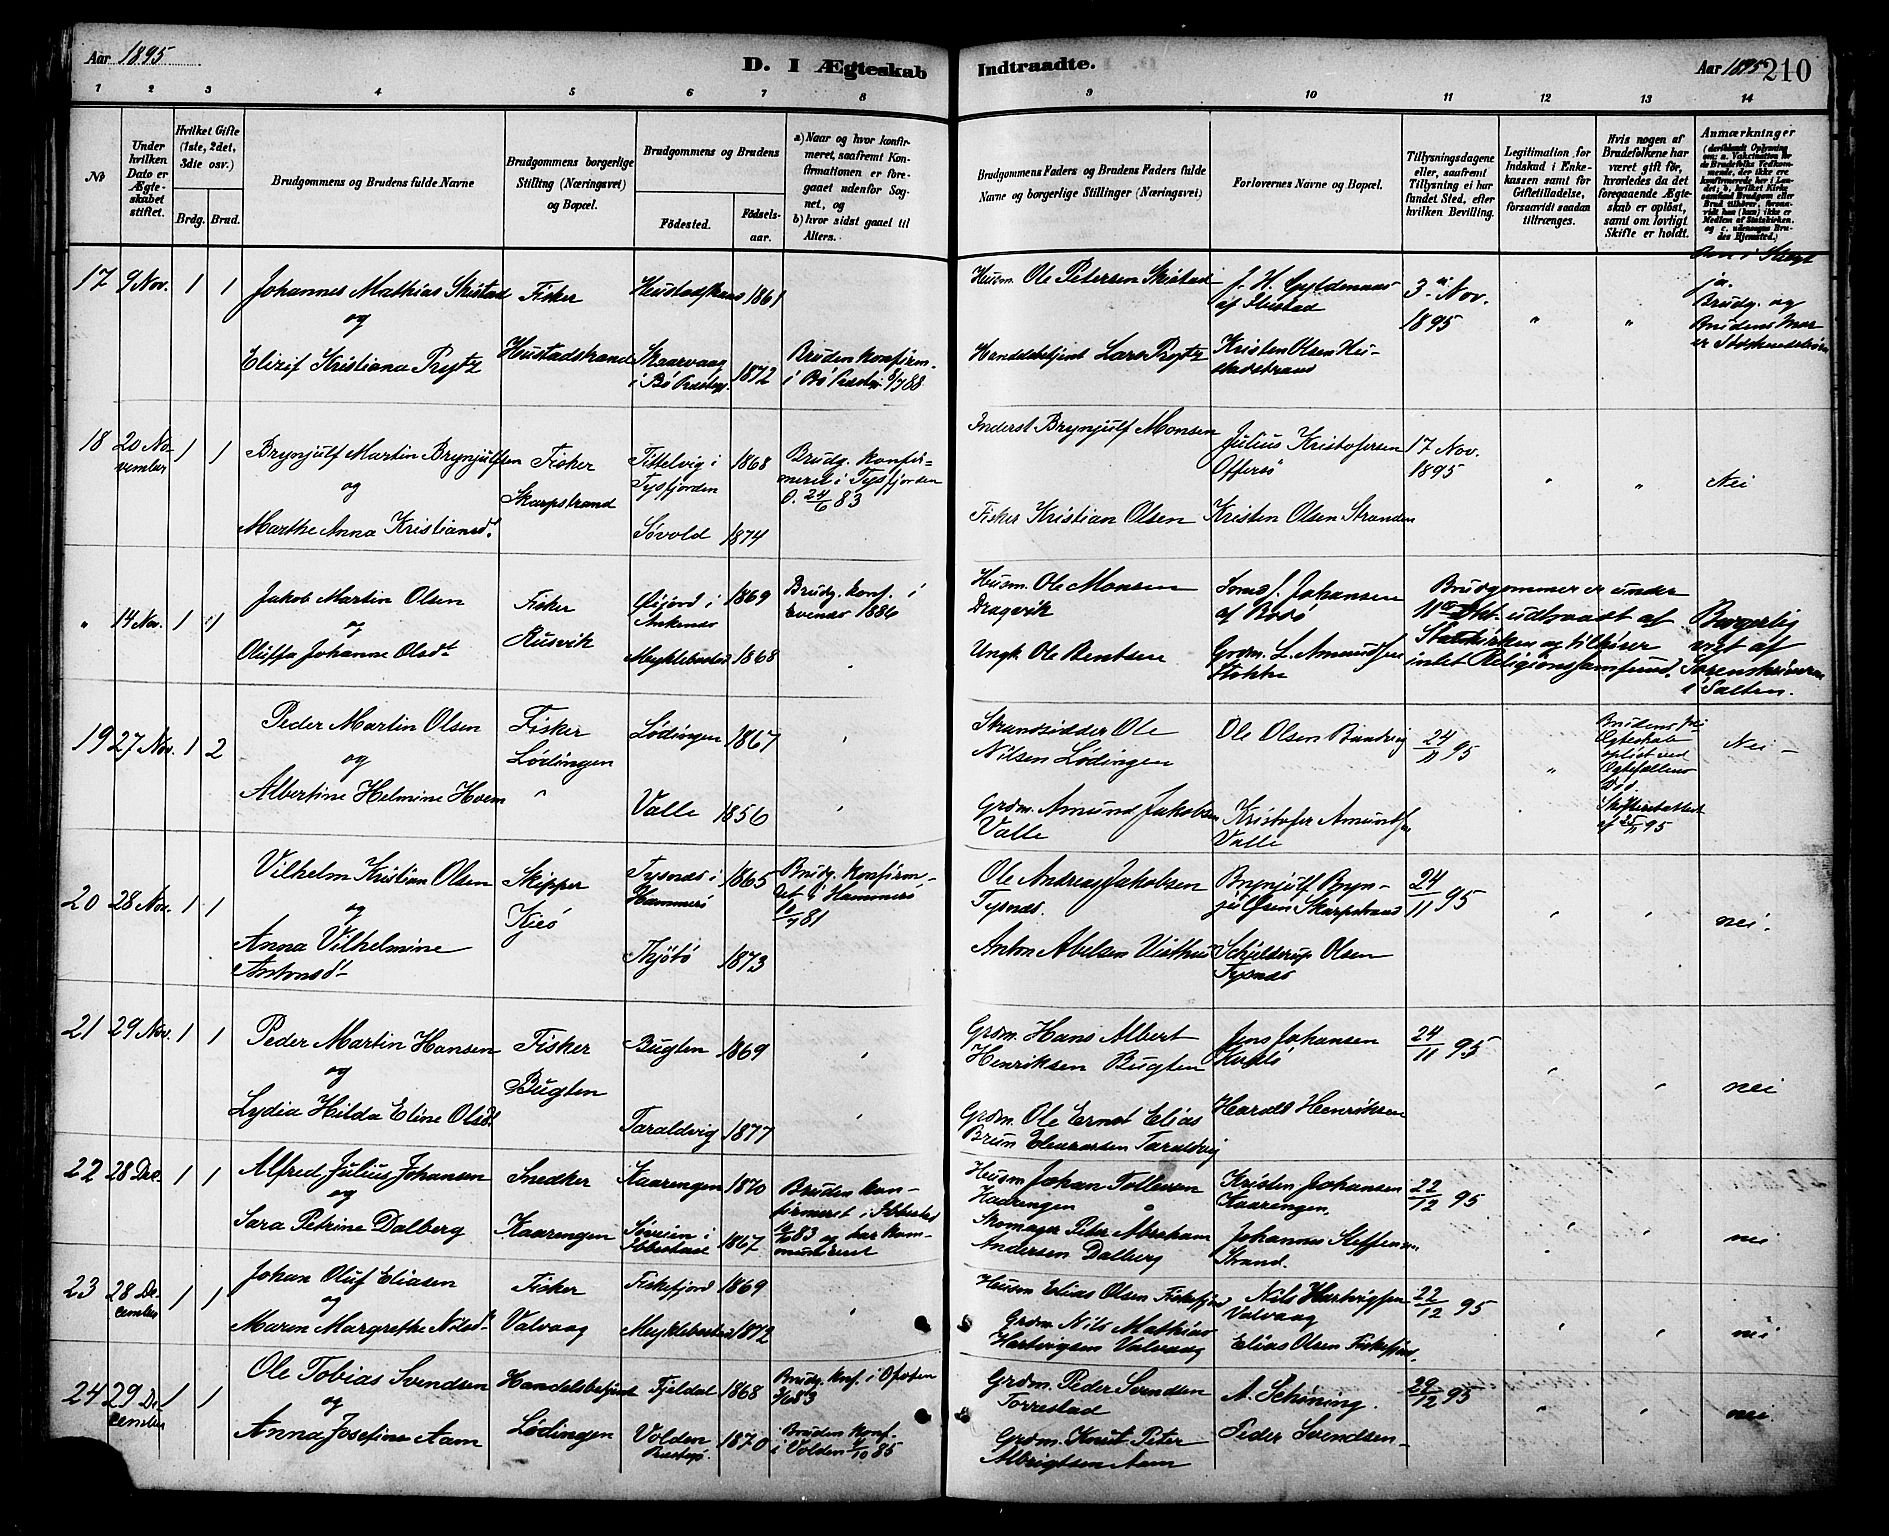 Aar 1895
D. I Ægteskab Indtraadte.
Aar 1895 210
1 2 3 4 5 6 7 8 9 10 11 12 13 14
No
Under hvilken Dato er Ægteskabet stiftet.
Hvilket Gifte (1ste, 2det, 3die osv.)
Brdg. Brud.
Brudgommens og Brudens fulde Navne
Brudgommens borgerlige Stilling (Næringsvei) og Bopæl.
Brudgommens og Brudens
Födested.
Födselsaar.
a) Naar og hvor konfirmeret, saafremt Konfirmationen er foregaaet udenfor Sognet, og
b) hvor sidst gaaet til Alters.
Brudgommens Faders og Brudens Faders fulde Navne og borgerlige Stillinger (Næringsvei)
Forlovernes Navne og Bopæl.
Tillysningsdagene eller, saafremt Tillysning ei har fundet Sted, efter hvilken Bevilling.
Legitimation for Indskud i Enkekassen samt for Giftetilladelse, forsaavidt saadan tiltrænges.
Hvis nogen af Brudefolkene har været gift før, hvorledes da det foregaaende Ægteskab er oplöst, samt om lovligt Skifte er holdt.
Anmærkninger
17 9 Nov. 1 1
Johannes Mathias Skistad
og
Elizif Kristiana Prytz
Fisker
Hustadstrand
1861
Skaarvaag
i Bö Præstegj. 1872
Bruden konfirm.
i Bö Præstegj. 8/7 88
Husm. Ole Petersen Skistad
Handelsbetjent Lars Prytz
J. H. Gyldenaas
af Ibestad
Kristen Olsen Hustadstrand
3. Nov.
1895
" "
ja.
Brudg. og
Brudens Mor
18 20 November 1 1
Brynjulf Martin Brynjulfsen
og
Marthe Anna Kristiansd.
Fisker
Skarpstrand
Tittelvig i
Tysfjorden 1868
Søvold 1874
Brudg. konfirmeret i Tysfjorden
24/6 83
Inderst Brynjulf Monsen
Fisker Kristian Olsen
Julius Kristofersen
Offersø
Kristen Olsen Stranden
17 Nov.
1895
" "
Nei
" 14 Nov. 1 1
Jakob Martin Olsen
og
Oluffa Johanne Olsdt
Fisker
Rusvik
Øijord i
Ankenæs 1869
Myklebostad 1868
Brudg. konf. i
Evenæs 1886
Husm. Ole Monsen
Dragvik
Ungk. Ole Bentsen
Johansen
af Rosö
Grdm. L. Amundsen
Stokke
Brudgommen er under
11te Okt. udtraadt af
Statskirken og tilhører
intet Religionssamfund.
Borgerlig
viet af
Sorenskriveren
i Salten.
19 27 Nov. 1 2
Peder Martin Olsen
og
Albertine Helmine Hvem
Fisker
Lødingen
"
Lødingen 1867
Valle 1856
Strandsidder Ole
Nilsen Lødingen
Grdm. Amund Jakobsen
Valle
Ole Olsen Rundvig
Kristofer Amundsen
Valle
24/11 95
"
Brudens frei
Ægteskab
opløst ved
Ægtefællens
Död
Skifteattest
af 25/11 95
Nei
20 28 Nov. 1 1
Vilhelm Kristian Olsen
og
Anna Vilhelmine
Antonsdt
Skipper
Kjeö
Tysnes i
Hammerö 1865
Thjøtö 1873
Brudg. konfirmdet i Hammerö
/7 81
Ole Andreas Jakobsen
Tysnes.
Anton Abelsen Visthus
Brynjulf Brynjulfsen Skarpstrand
Schjelderup Olsen
Tysnes
24/11 95
nei.
21 29 Nov. 1 1
Peder Martin Hansen
og
Lydia Hilda Eline Olsdt.
Fisker
Bugten
Bugten 1869
Taraldvig 1877
Grdm. Hans Albert
Henriksen Bugten
Grdm. Ole Ernst Elias
Brun Eliasen Taraldvig
Jens Johansen
Harald Henriksen
24/11 95
nei
22 28 Dec. 1 1
Alfred Julius Johansen
og
Sara Petrine Dalberg
Snedker
Kaarengen
Kaarengen 1870
Søveien i
Ibbestad 1867
Bruden konfirmeret i Ibbestad
83 og har kommuniceret
Husm. Johan Tollevsen
Kaarengen
Skomager Peder Abraham
Andersen Dalberg
Kristen Johansen
Kaarengen
Johannes Steffensen
Strand.
22/12 95
nei
23 28 December 1 1
Johan Oluf Eliasen
og
Maren Margrethe Nilsdt.
Fisker
Valvaag
Fiskefjord 1869
Myklebostad 1872
Husm Elias Olsen Fiskefjord
Grdm. Nils Mathias
Hartvigsen Valvaag
Nils Hartvigsen
Valvaag
Elias Olsen Fiskefjord.
22/12 95
nei
24 29 December 1 1
Ole Tobias Svendsen
og
Anna Josefine Aam
Handelsbetjent
Lødingen
Tjeldøt 1868
Volden
Præstegj. 1870
Brudg. konf. i Ofoten
83
Bruden konf.
i Volden /10 85
Grdm. Peder Svendsen
Torrestad
Grdm. Knut Peter
Albrigtsen Aam
A. Schöning.
Peder Svendsen
29/12 95
nei